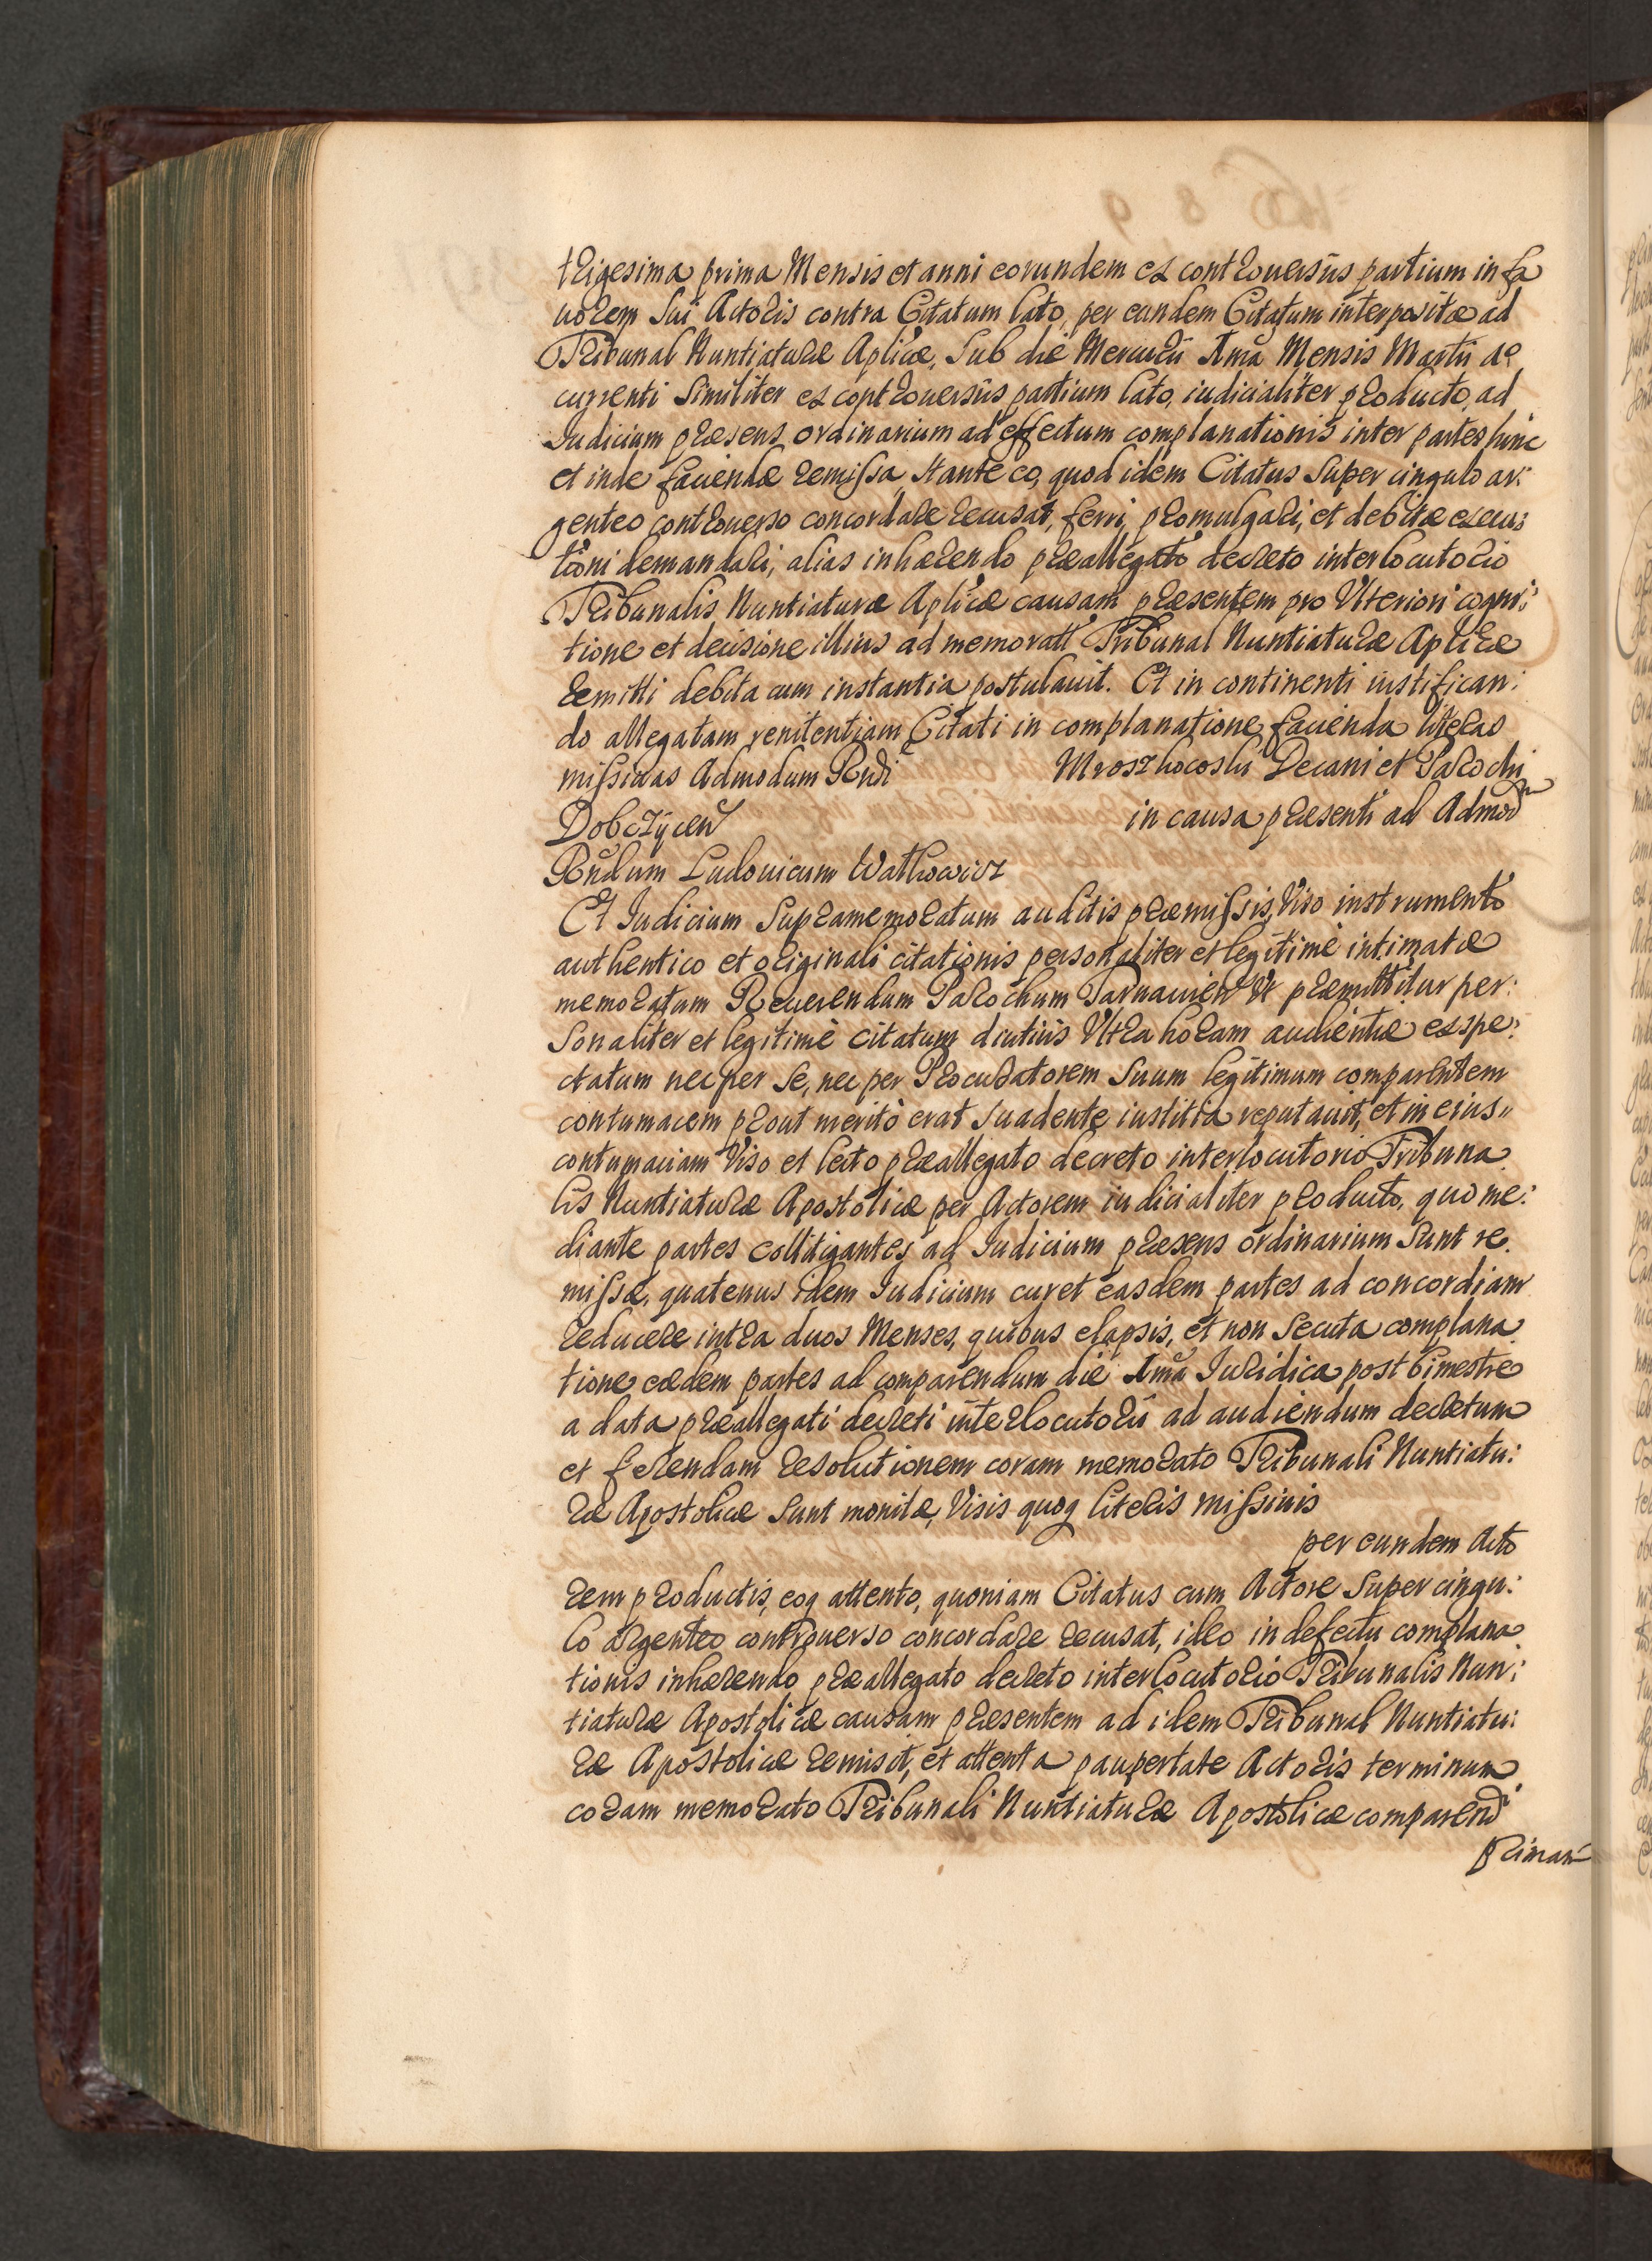 trigesima prima Mensis et anni eorundem ex controuersiis partium in fa
uorem sui Actoris contra Citatum lato, per eundem Citatum interpositæ ad
Tribunal Nuntiaturæ Aplicæ, sub die Mercurii 1ma Mensis Martii ao
currenti similiter ex controuersiis partium lato, iudicialiter producto, ad
Iudicium præsens ordinarium ad effectum complanationis inter partes hinc
et inde faciendæ remissa, stante eo, quod idem Citatus super cingulo ar:
genteo controuerso concordare recusat, ferri, promulgari, et debitæ execu:
tioni demandari; alias inhærendo præallegato decreto interlocutorio
Tribunalis Nuntiaturæ Aplicæ causam præsentem pro Vlteriori cogni:
tione et decisione illius ad memoratt Tribunal Nuntiaturæ Aplicæ
remitti debita cum instantia postulauit. Et in continenti iustifican:
do allegatam renitentiam Citati in complanatione facienda literas
missiuas Admodum Rndi Mroszkocoski Decani et Parochi
Dobczÿcen in causa præsenti ad Admodm
Rndum Ludouicum Watkowicz
Et Iudicium supramemoratum auditis præmissis, Viso instrumento
authentico et originali citationis personaliter et legitimè intimatæ
memoratum Reuerendum Parochum Tarnauien Vt præmittitur per:
sonaliter et legitimè citatum diutiùs Vltra horam audientiæ exspe:
ctatum nec per se, nec per Procuratorem suum legitimum comparentem
contumacem prout meritò erat suadente iustitia reputauit, et in eius
contumaciam Viso et lecto præallegato decreto interlocutorio Tribuna
lis Nuntiaturæ Apostolicæ per Actorem iudicialiter producto, quo me:
diante partes collitigantes ad Iudicium præsens ordinarium sunt re
missæ, quatenus idem Iudicium curet easdem partes ad concordiam
reducere intra duos Menses, quibus elapsis, et non secuta complana
tione eædem partes ad comparendum die 1ma Iuridica post bimestre
a data præallegati decreti interlocutorii ad audiendum decretum
et ferendam resolutionem coram memorato Tribunali Nuntiatu:
ræ Apostolicæ sunt monitæ, Visis quoq literis missiuis
per eundem Acto
rem productis, eoq attento, quoniam Citatus cum Actore super cingu:
lo argenteo controuerso concordare recusat, ideo in defectu complana
tionis inhærendo præallegato decreto interlocutorio Tribunalis Nun:
tiaturæ Apostolicæ causam præsentem ad idem Tribunal Nuntiatu:
ræ Apostolicæ remisit, et attenta paupertate Actoris terminum
coram memorato Tribunali Nuntiaturæ Apostolicæ comparendi
primam